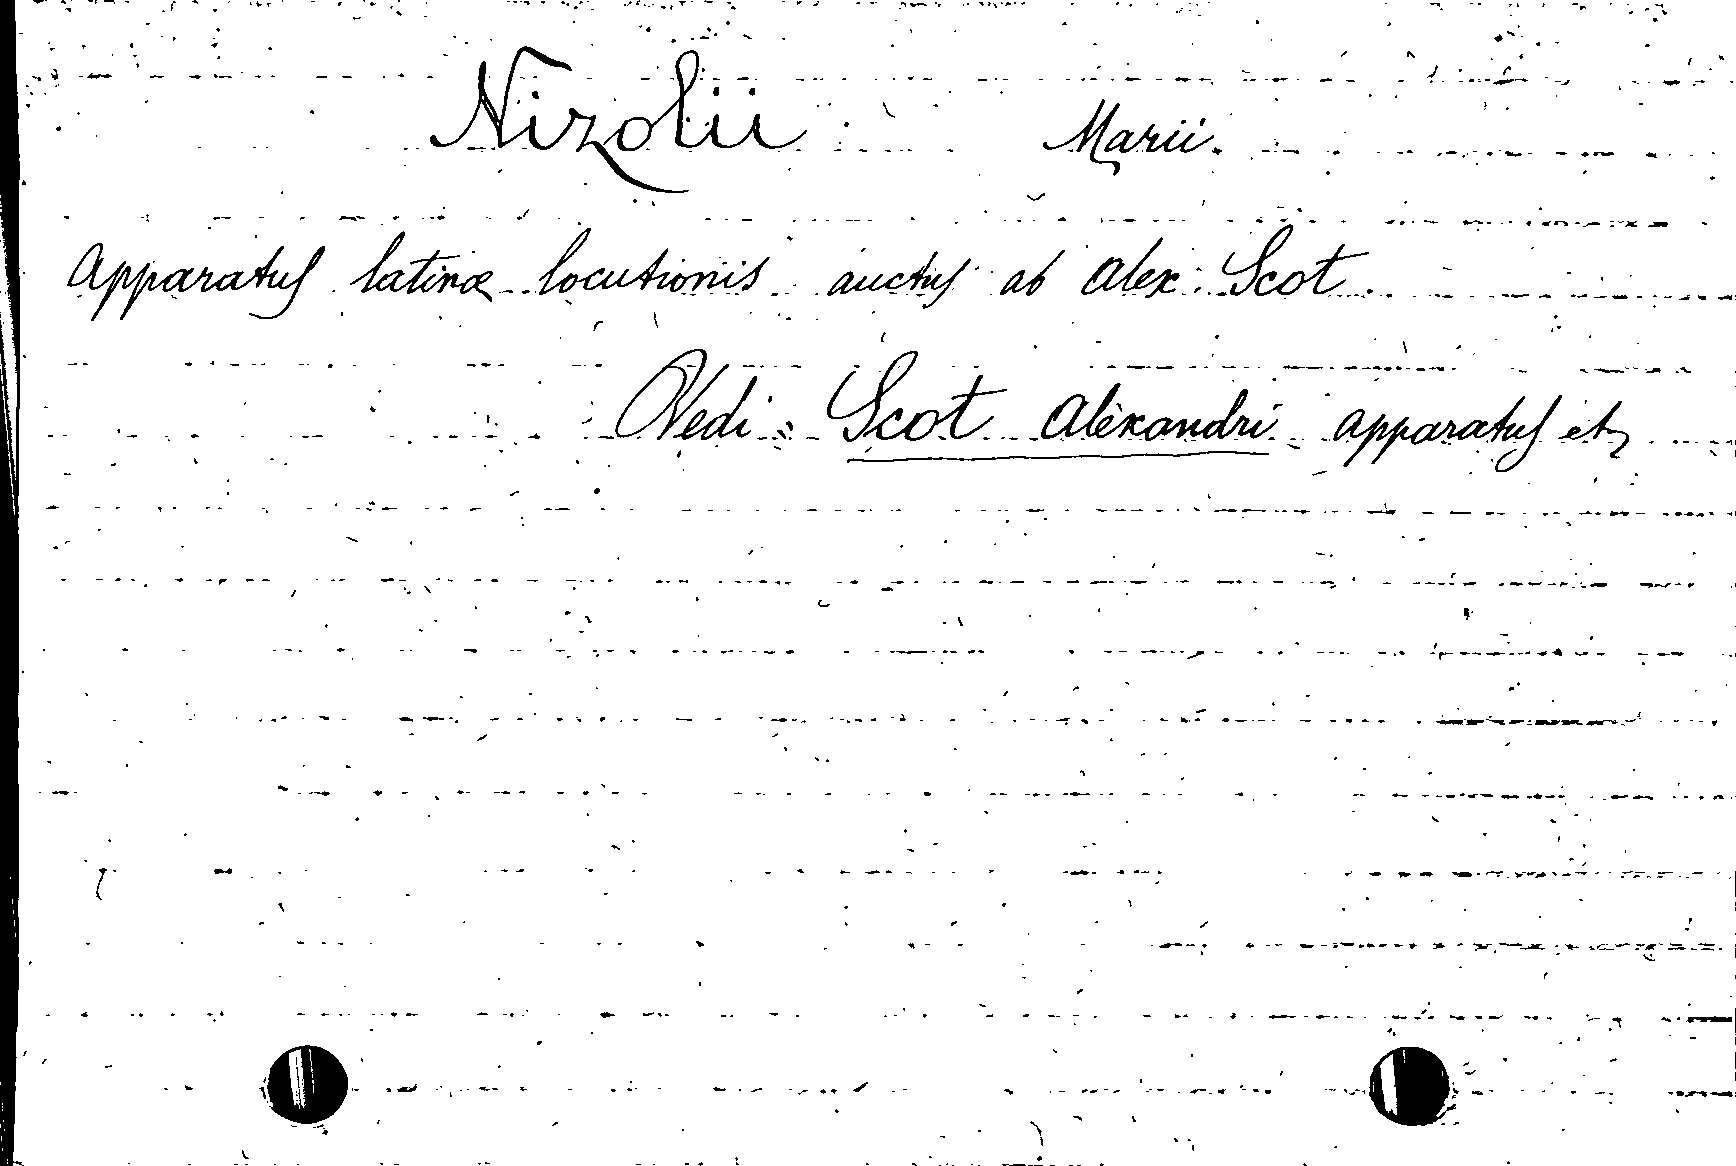 Nizolii Marii.
Apparatus latinæ locutionis auctus ab Alex: Scot.
Vedi: Scot Alexandri apparatus etc